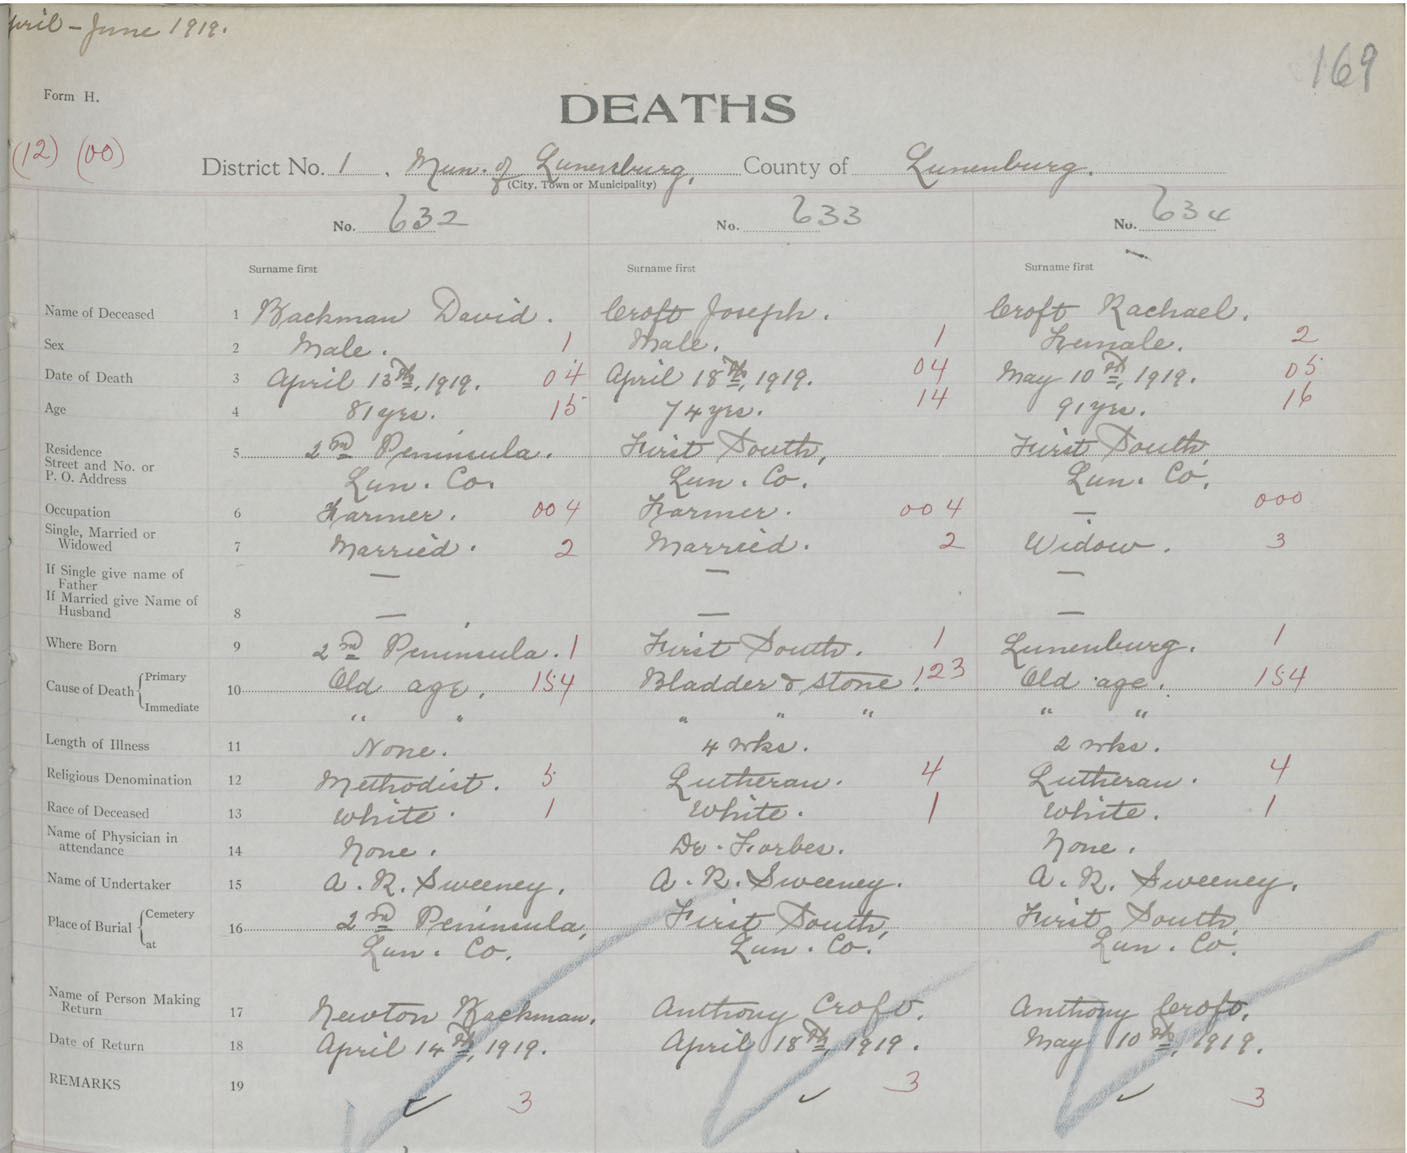 April - June 1919.
169
Form H.
DEATHS
(12) (00)
District No. 1. Mun. of Lunenburg, County of Lunenburg.
(City, Town or Municipality)
No. 632 No. 633 No. 634
Surname first Surname first Surname first
Name of Deceased 1 Backman David. Croft Joseph. Croft Rachael.
Sex 2 Male. 1 Male. 1 Female. 2
Date of Death 3 April 13th, 1919. 04 April 18th, 1919. 04 May 10th, 1919. 05
Age 4 81 yrs. 15 74 yrs. 14 91 yrs. 16
Residence
Street and No. or 5 2nd Peninsula. First South, First South,
P. O. Address Lun. Co. Lun. Co. Lun. Co.
Occupation 6 Farmer. 004 Farmer. 004 — 000
Single, Married or
Widowed 7 Married. 2 Married. 2 Widow. 3
If Single give name of — — —
Father
If Married give Name of
Husband 8 — — —
Where Born 9 2nd Peninsula. 1 First South. 1 Lunenburg. 1
Cause of Death { Primary 10 Old age. 154 Bladder & stone. 123 Old age. 154
Immediate " " " " " " "
Length of Illness 11 None. 4 wks. 2 wks.
Religious Denomination 12 Methodist. 5 Lutheran. 4 Lutheran. 4
Race of Deceased 13 White. 1 White. 1 White. 1
Name of Physician in
attendance 14 None. Dr. Forbes. None.
Name of Undertaker 15 A. R. Sweeney. A. R. Sweeney. A. R. Sweeney.
Place of Burial { Cemetery 16 2nd Peninsula, First South, First South,
at Lun. Co. Lun. Co. Lun. Co.
Name of Person Making
Return 17 Newton Backman. Anthony Croft. Anthony Croft.
Date of Return 18 April 14th, 1919. April 18th, 1919. May 10th, 1919.
REMARKS 19 ✓ 3 ✓ 3 ✓ 3